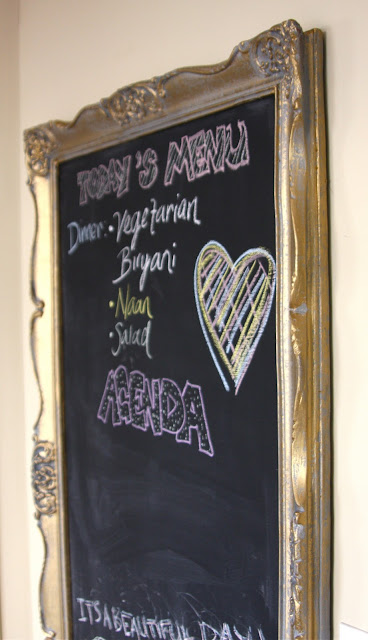 TODAY'S MENU
Dinner: • Vegetarian
Biryani
• Naan
• Salad
AGENDA
IT'S A BEAUTIFUL DAY